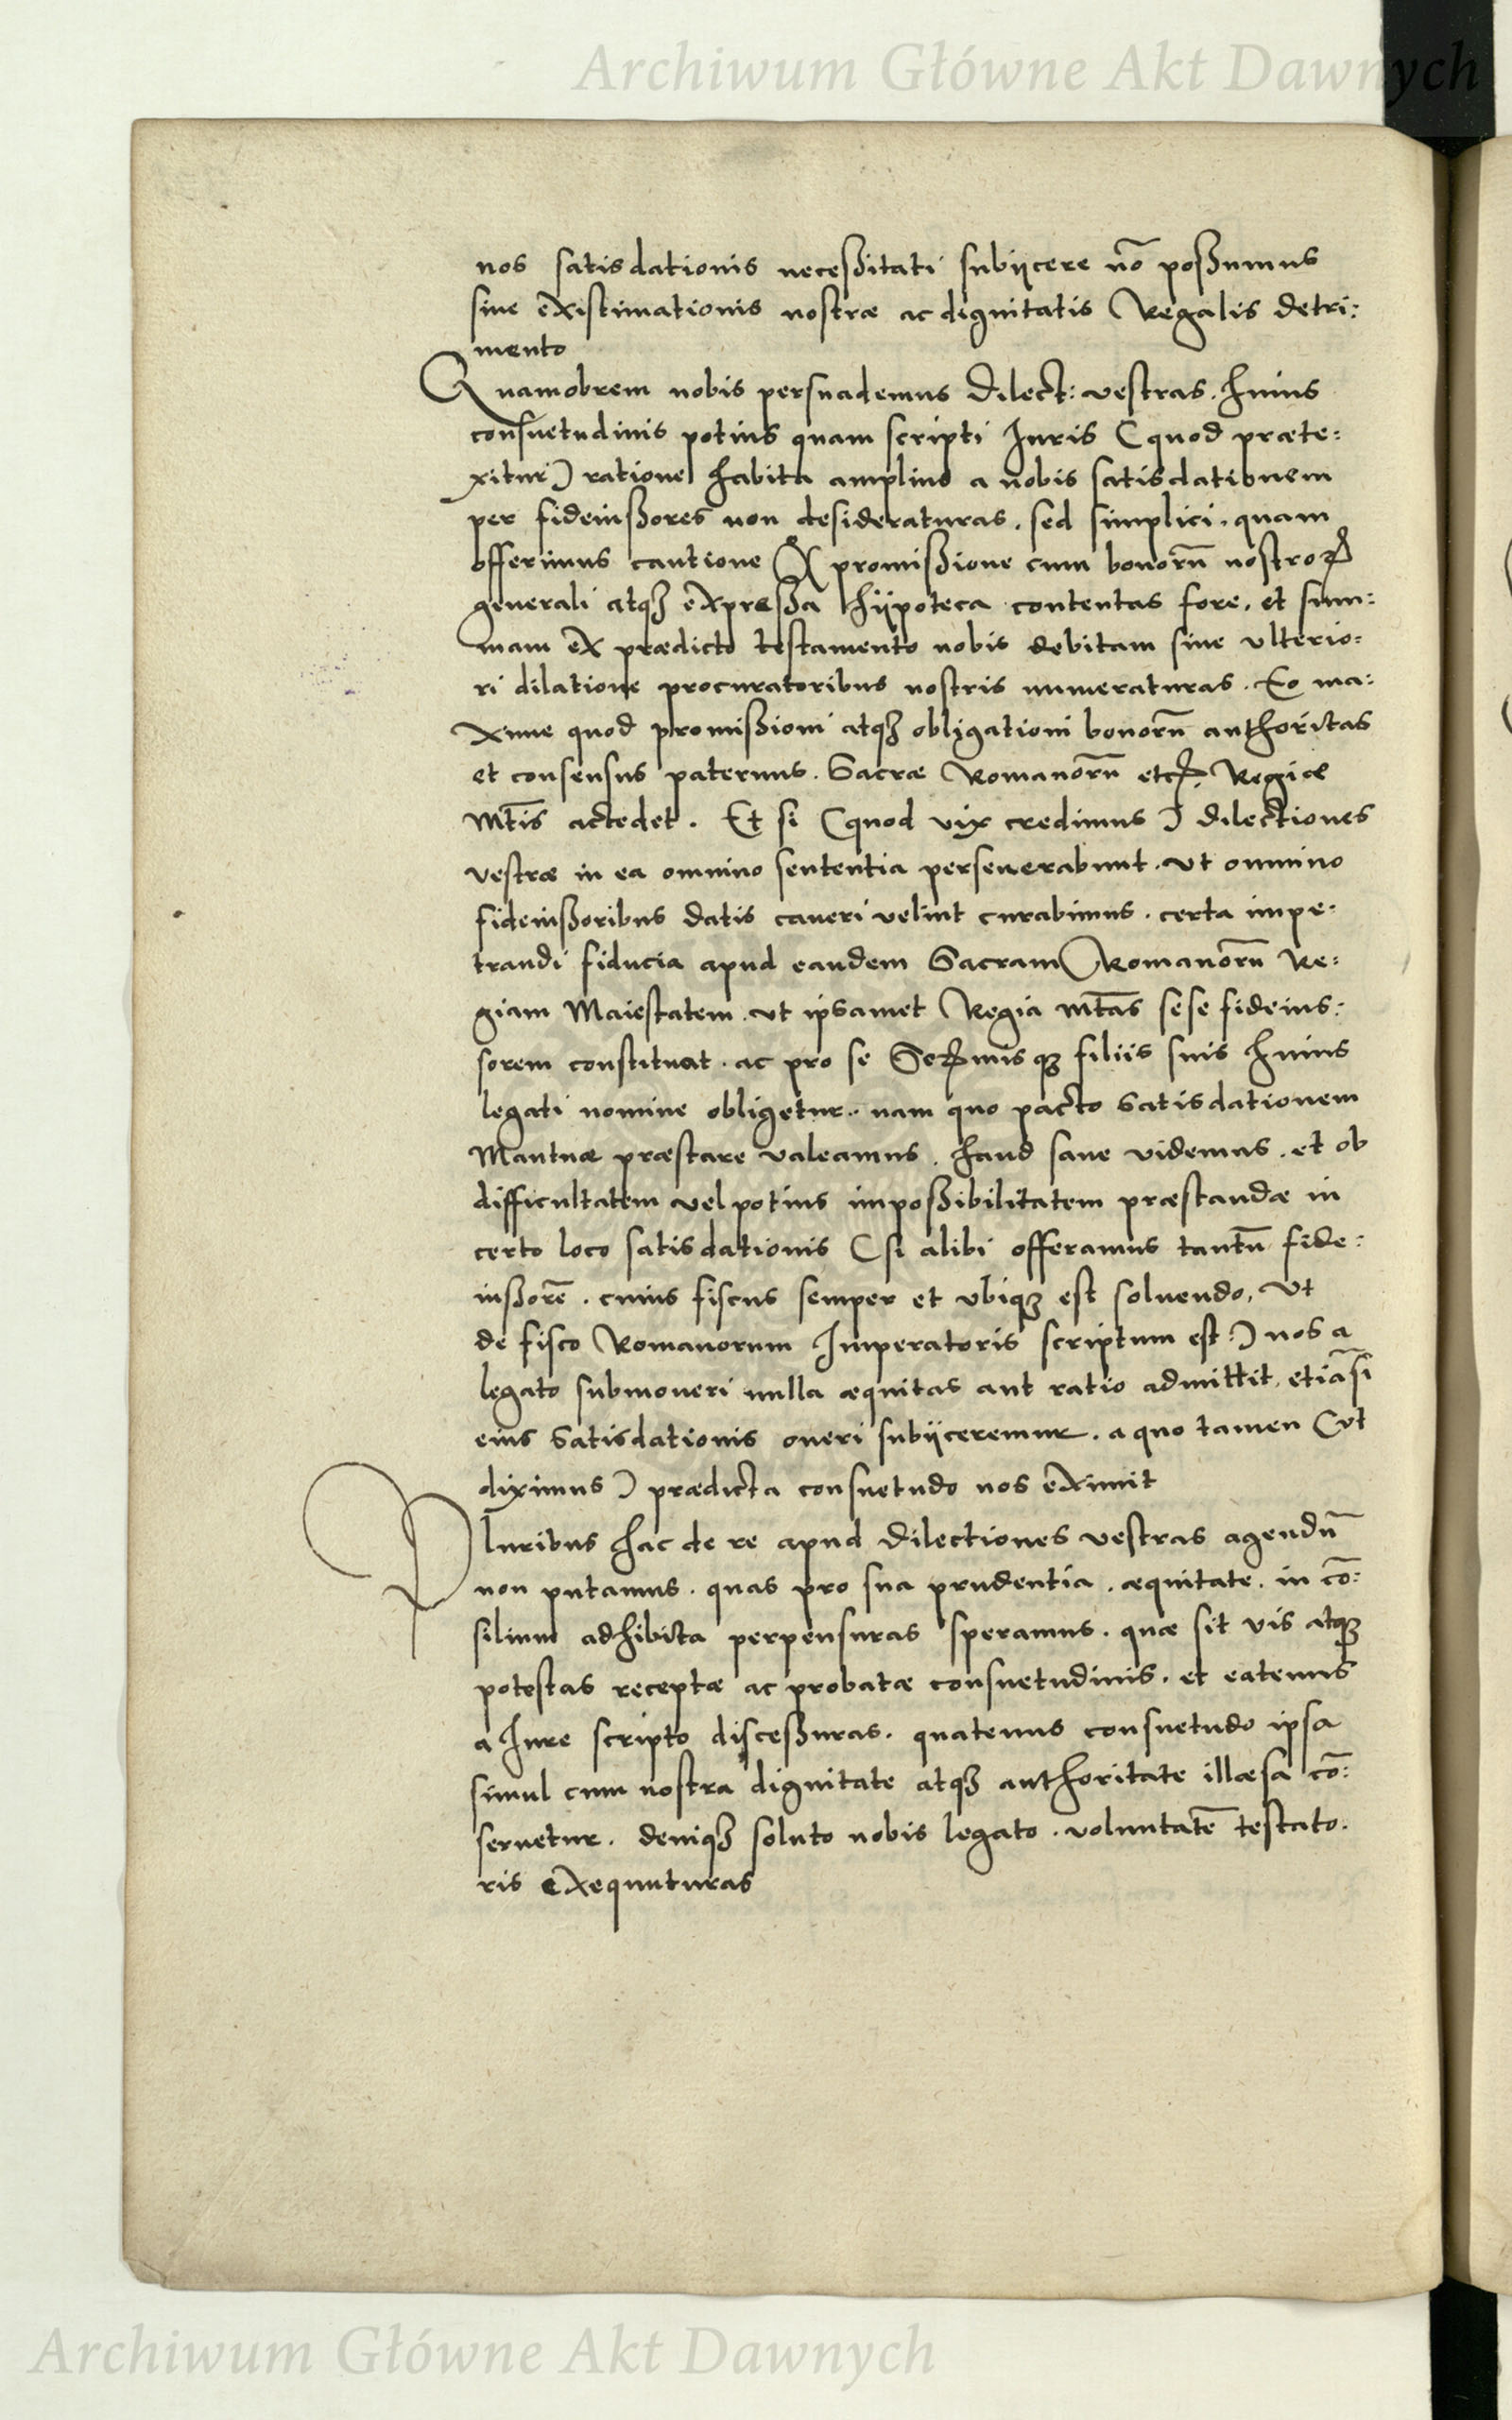 Archiwum Główne Akt Dawnych
nos satisdationis neceßitati subiicere nō poßumus
sine existimationis nostræ ac dignitatis Regalis detri:
mento
Quamobrem nobis persuademus Dilect: vestras. huius
consuetudinis potius quam scripti Iuris (quod præte:
xitur) ratione habita amplius a nobis satisdationem
per fideiußores non desideraturas. sed simplici. quam
offerimus cautione & promißione cum bonorū nostroꝝ
generali atqꝫ expreßa hÿpoteca contentas fore. et sum:
mam ex prædicto testamento nobis debitam sine ulterio:
ri dilatione procuratoribus nostris numeraturas. Eo ma:
xime quod promißioni atqꝫ obligationi bonorū authoritas
et consensus paternus. Sacræ Romanorū etc. Regiæ
Mt̄is accedet. Et si (quod vix credimus) dilectiones
vestræ in ea omnino sententia perseuerabunt. ut omnino
fideiußoribus datis caueri velint curabimus. certa impe:
trandi fiducia apud eandem Sacram Romanorū Re:
giam Maiestatem. ut ipsamet Regia Mt̄as sese fideius:
sorem constituat. ac pro se Serīmisqꝫ filiis suis huius
legati nomine obligetur. nam quo pacto satisdationem
Mantuæ præstare valeamus. haud sane videmus. et ob
difficultatem vel potius impoßibilitatem præstandæ in
certo loco satisdationis (si alibi offeramus tantū fide:
iußorē. cuius fiscus semper et ubiqꝫ est soluendo. ut
de fisco Romanorum Imperatoris scriptum est) nos a
legato submoueri nulla æquitas aut ratio admittit. etiāsi
eius satisdationis oneri subiiceremur. a quo tamen (vt
diximus) prædicta consuetudo nos eximit
Pluribus hac de re apud Dilectiones vestras agendū
non putamus. quas pro sua prudentia. æquitate. in cō:
silium adhibita perpensuras speramus. quæ sit vis atqꝫ
potestas receptæ ac probatæ consuetudinis. et eatenus
a Iure scripto disceßuras. quatenus consuetudo ipsa
simul cum nostra dignitate atqꝫ authoritate illæsa cō:
seruetur. deniqꝫ soluto nobis legato. voluntatē testato.
ris exequuturas
Archiwum Główne Akt Dawnych